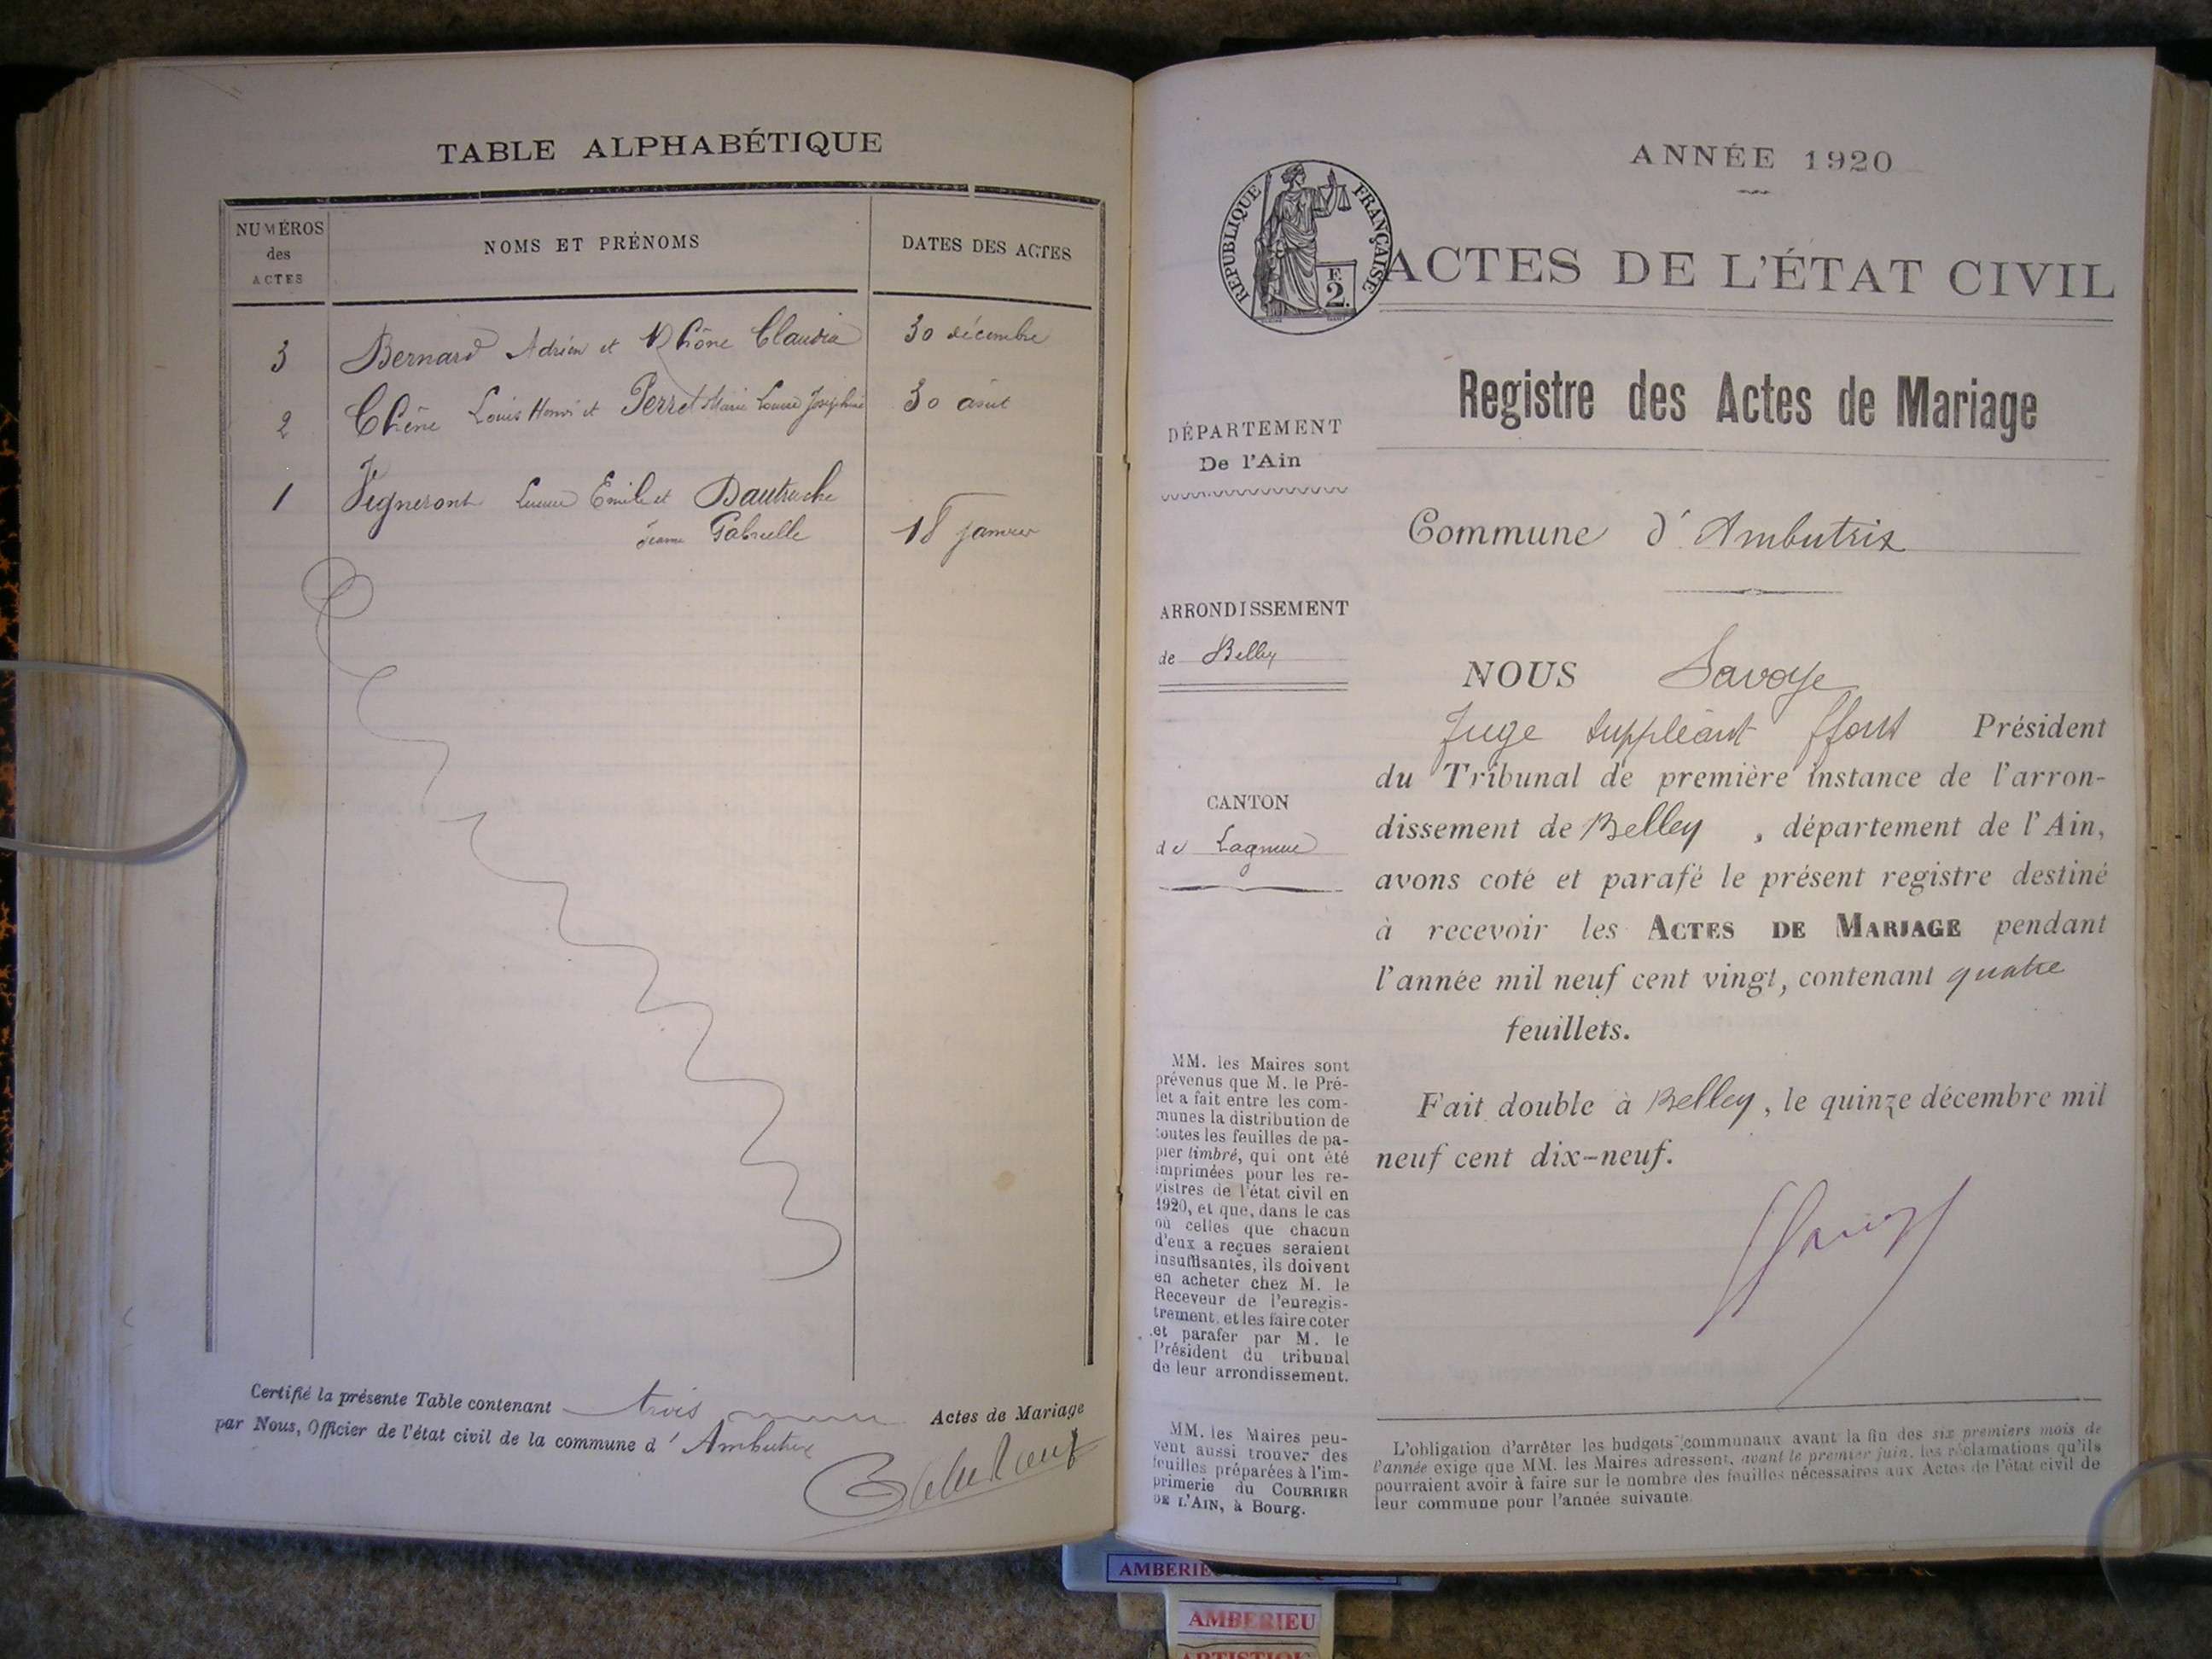 TABLE ALPHABÉTIQUE
NUMÉROS
des
ACTES
NOMS ET PRÉNOMS
DATES DES ACTES
3 Bernard Adrien et Rhône Claudia 30 décembre
2 Chêne Louis Henri et Perret Marie Louise Joséphine 30 août
1 Vigneront Emile et Dautruche
Jeanne Gabrielle 18 janvier
Certifié la présente Table contenant trois Actes de Mariage
par Nous, Officier de l'état civil de la commune d'Ambutrix
ANNÉE 1920
RÉPUBLIQUE FRANÇAISE
F.
2.
ACTES DE L'ÉTAT CIVIL
Registre des Actes de Mariage
DÉPARTEMENT
De l'Ain
Commune d'Ambutrix
ARRONDISSEMENT
de Belley
CANTON
de Lagnieu
NOUS Savoye
Juge suppléant ffons Président
du Tribunal de première instance de l'arron-
dissement de Belley, département de l'Ain,
avons coté et parafé le présent registre destiné
à recevoir les ACTES DE MARIAGE pendant
l'année mil neuf cent vingt, contenant quatre
feuillets.
Fait double à Belley, le quinze décembre mil
neuf cent dix-neuf.
MM. les Maires sont
prévenus que M. le Pré-
fet a fait entre les com-
munes la distribution de
toutes les feuilles de pa-
pier timbré, qui ont été
imprimées pour les re-
gistres de l'état civil en
1920, et que, dans le cas
où celles que chacun
d'eux a reçues seraient
insuffisantes, ils doivent
en acheter chez M. le
Receveur de l'enregis-
trement, et les faire coter
et parafer par M. le
Président du tribunal
de leur arrondissement.
MM. les Maires peu-
vent aussi trouver des
feuilles préparées à l'im-
primerie du COURRIER
DE L'AIN, à Bourg.
L'obligation d'arrêter les budgets communaux avant la fin des six premiers mois de
l'année exige que MM. les Maires adressent, avant le premier juin, les réclamations qu'ils
pourraient avoir à faire sur le nombre des feuilles nécessaires aux Actes de l'état civil de
leur commune pour l'année suivante.
AMBERIEU